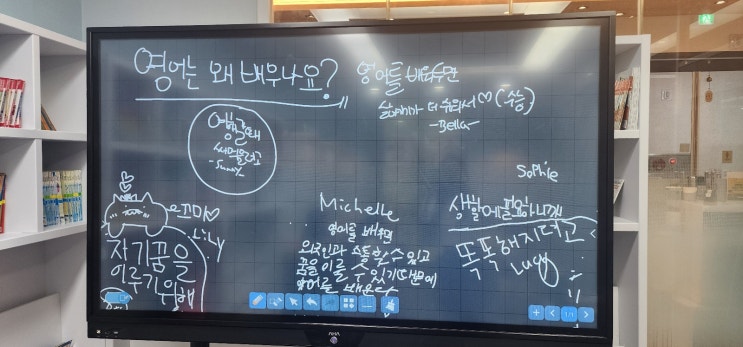 영어는 왜 배우나요?
영어를 배우면
삶이 더 쉬워서♡(수능)
-Bella-
여행갈때
-Sunny-
으끄미♡
Lily
자기꿈을
이루기위해
Michelle
영어를 배우면
외국인과 소통할수있고
꿈을 이룰 수 있기때문에
영어를 배운다
Sophie
생활에필요하니깐
똑똑해지려고
Lucy
1/1